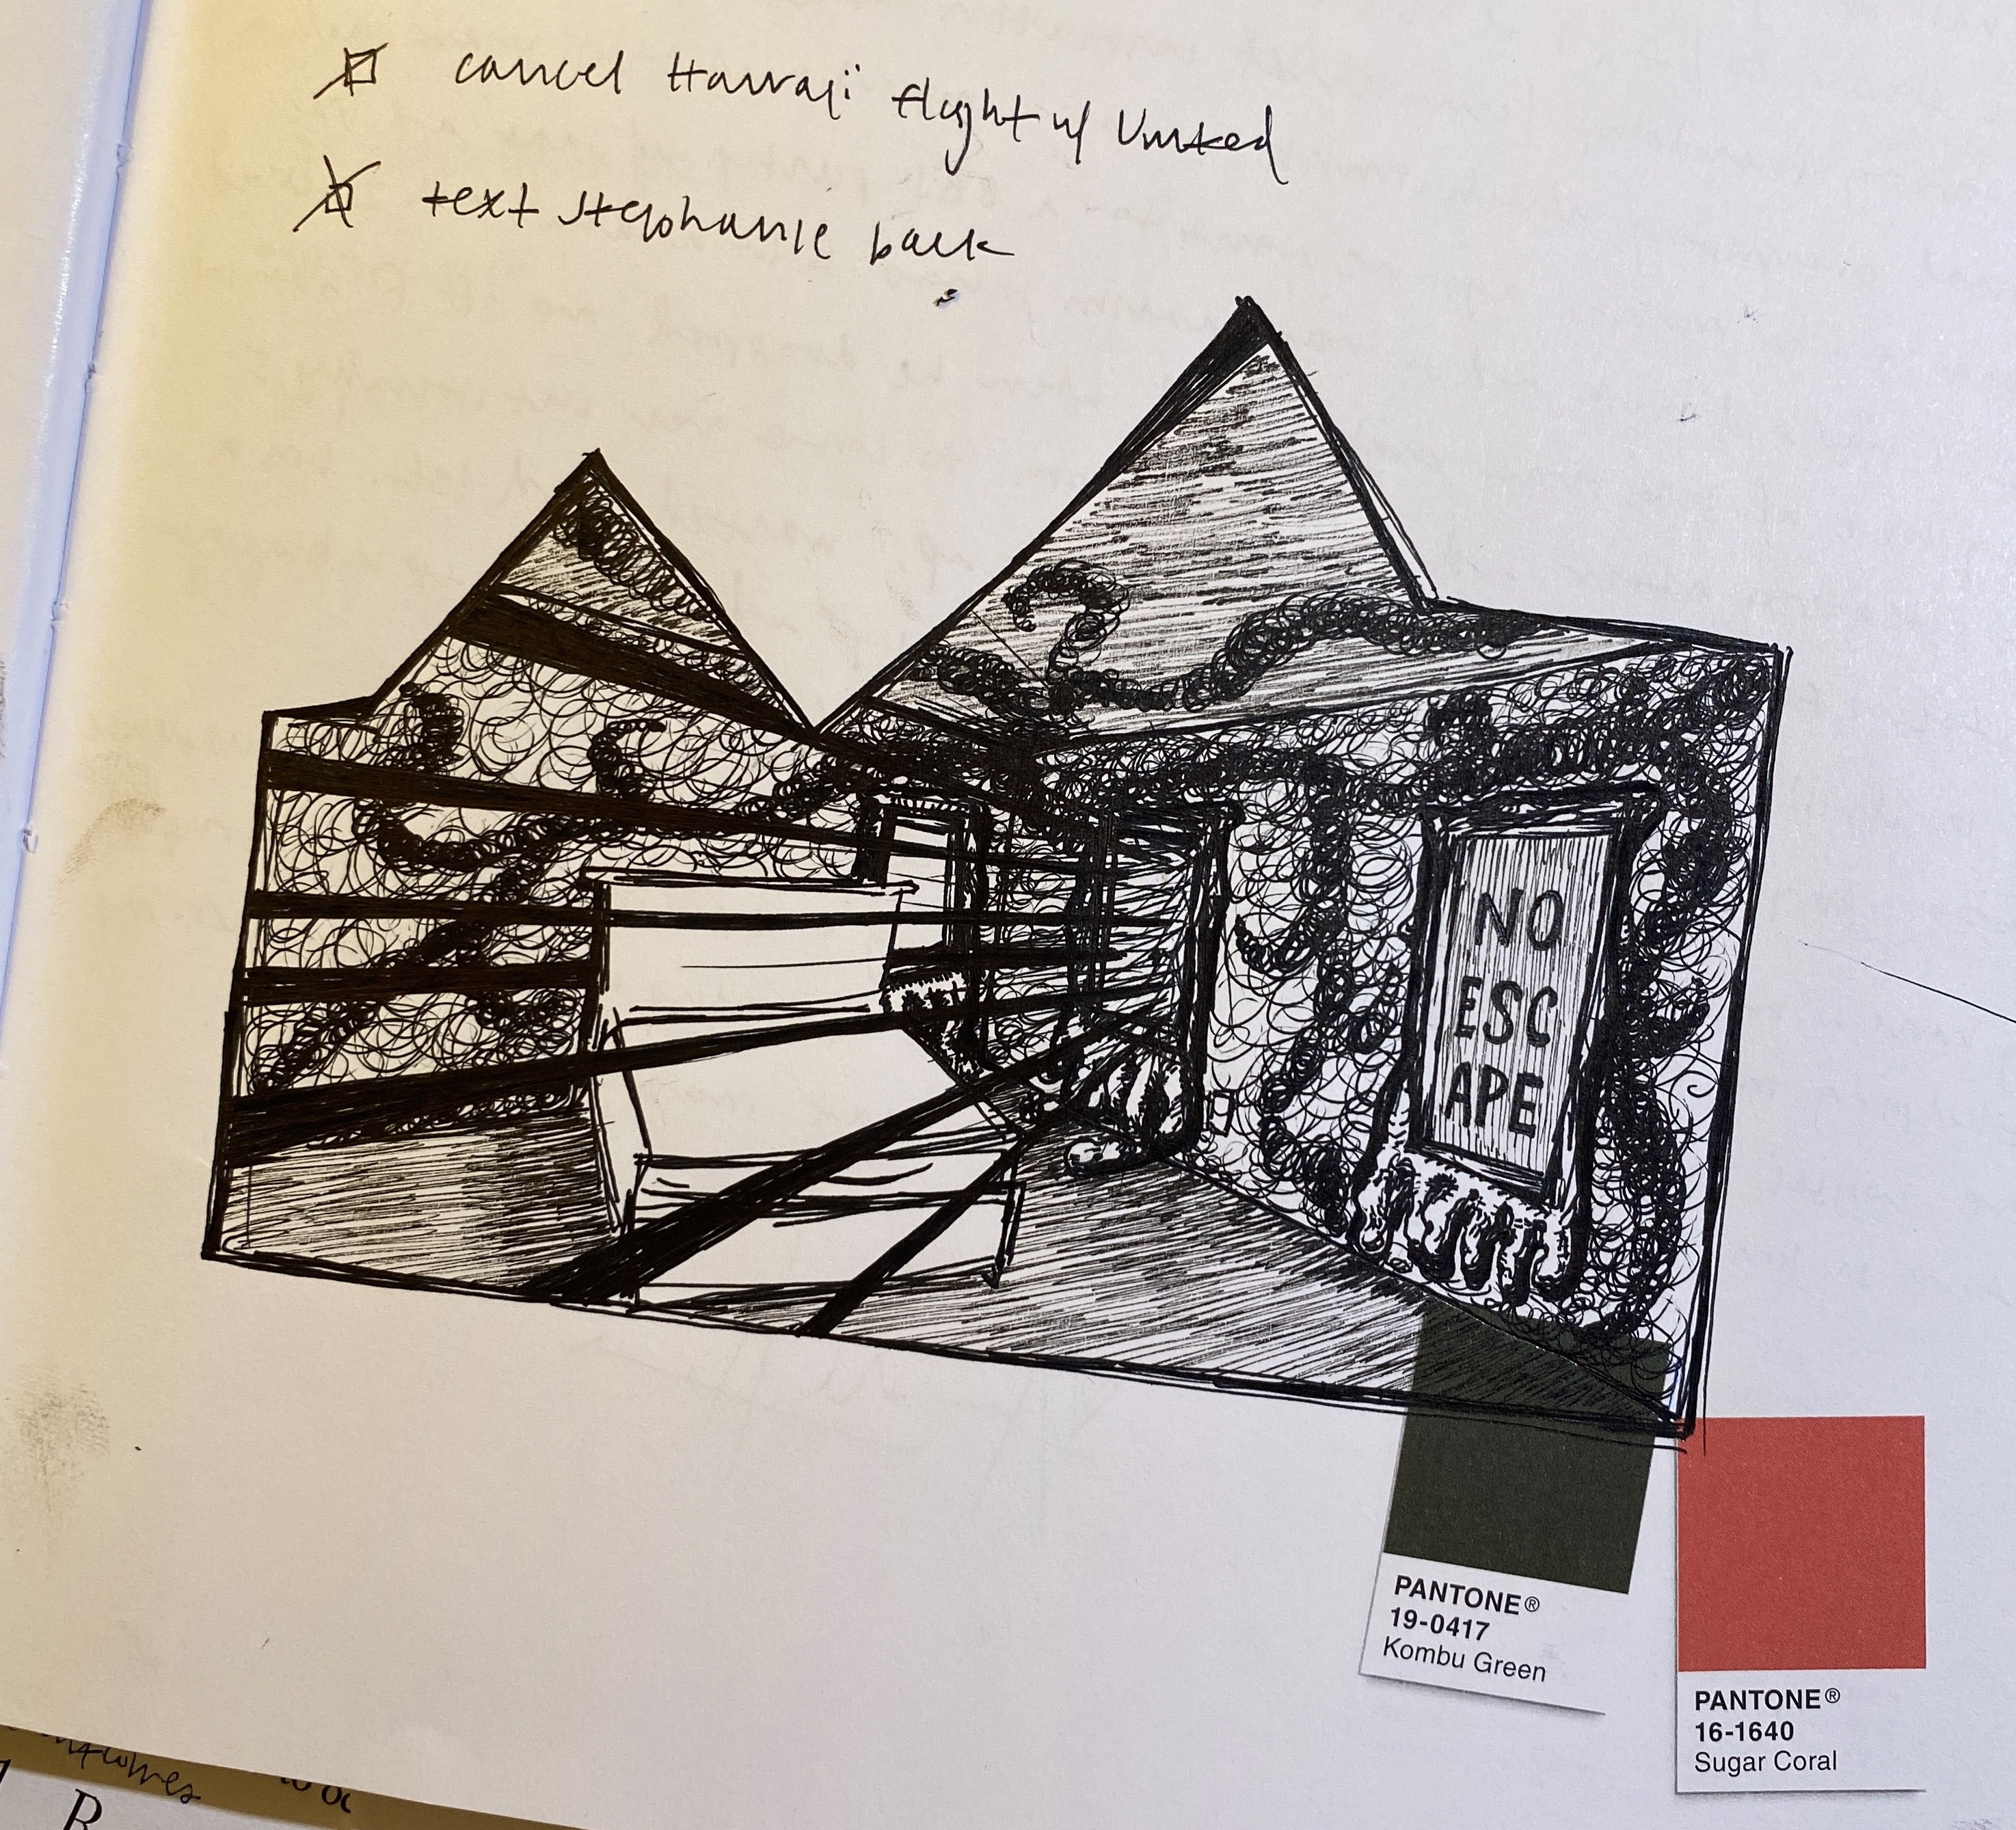 cancel Hawaii flight w/ United
text Stephanie back
NO
ESC
APE
PANTONE®
19-0417
Kombu Green
PANTONE®
16-1640
Sugar Coral
R